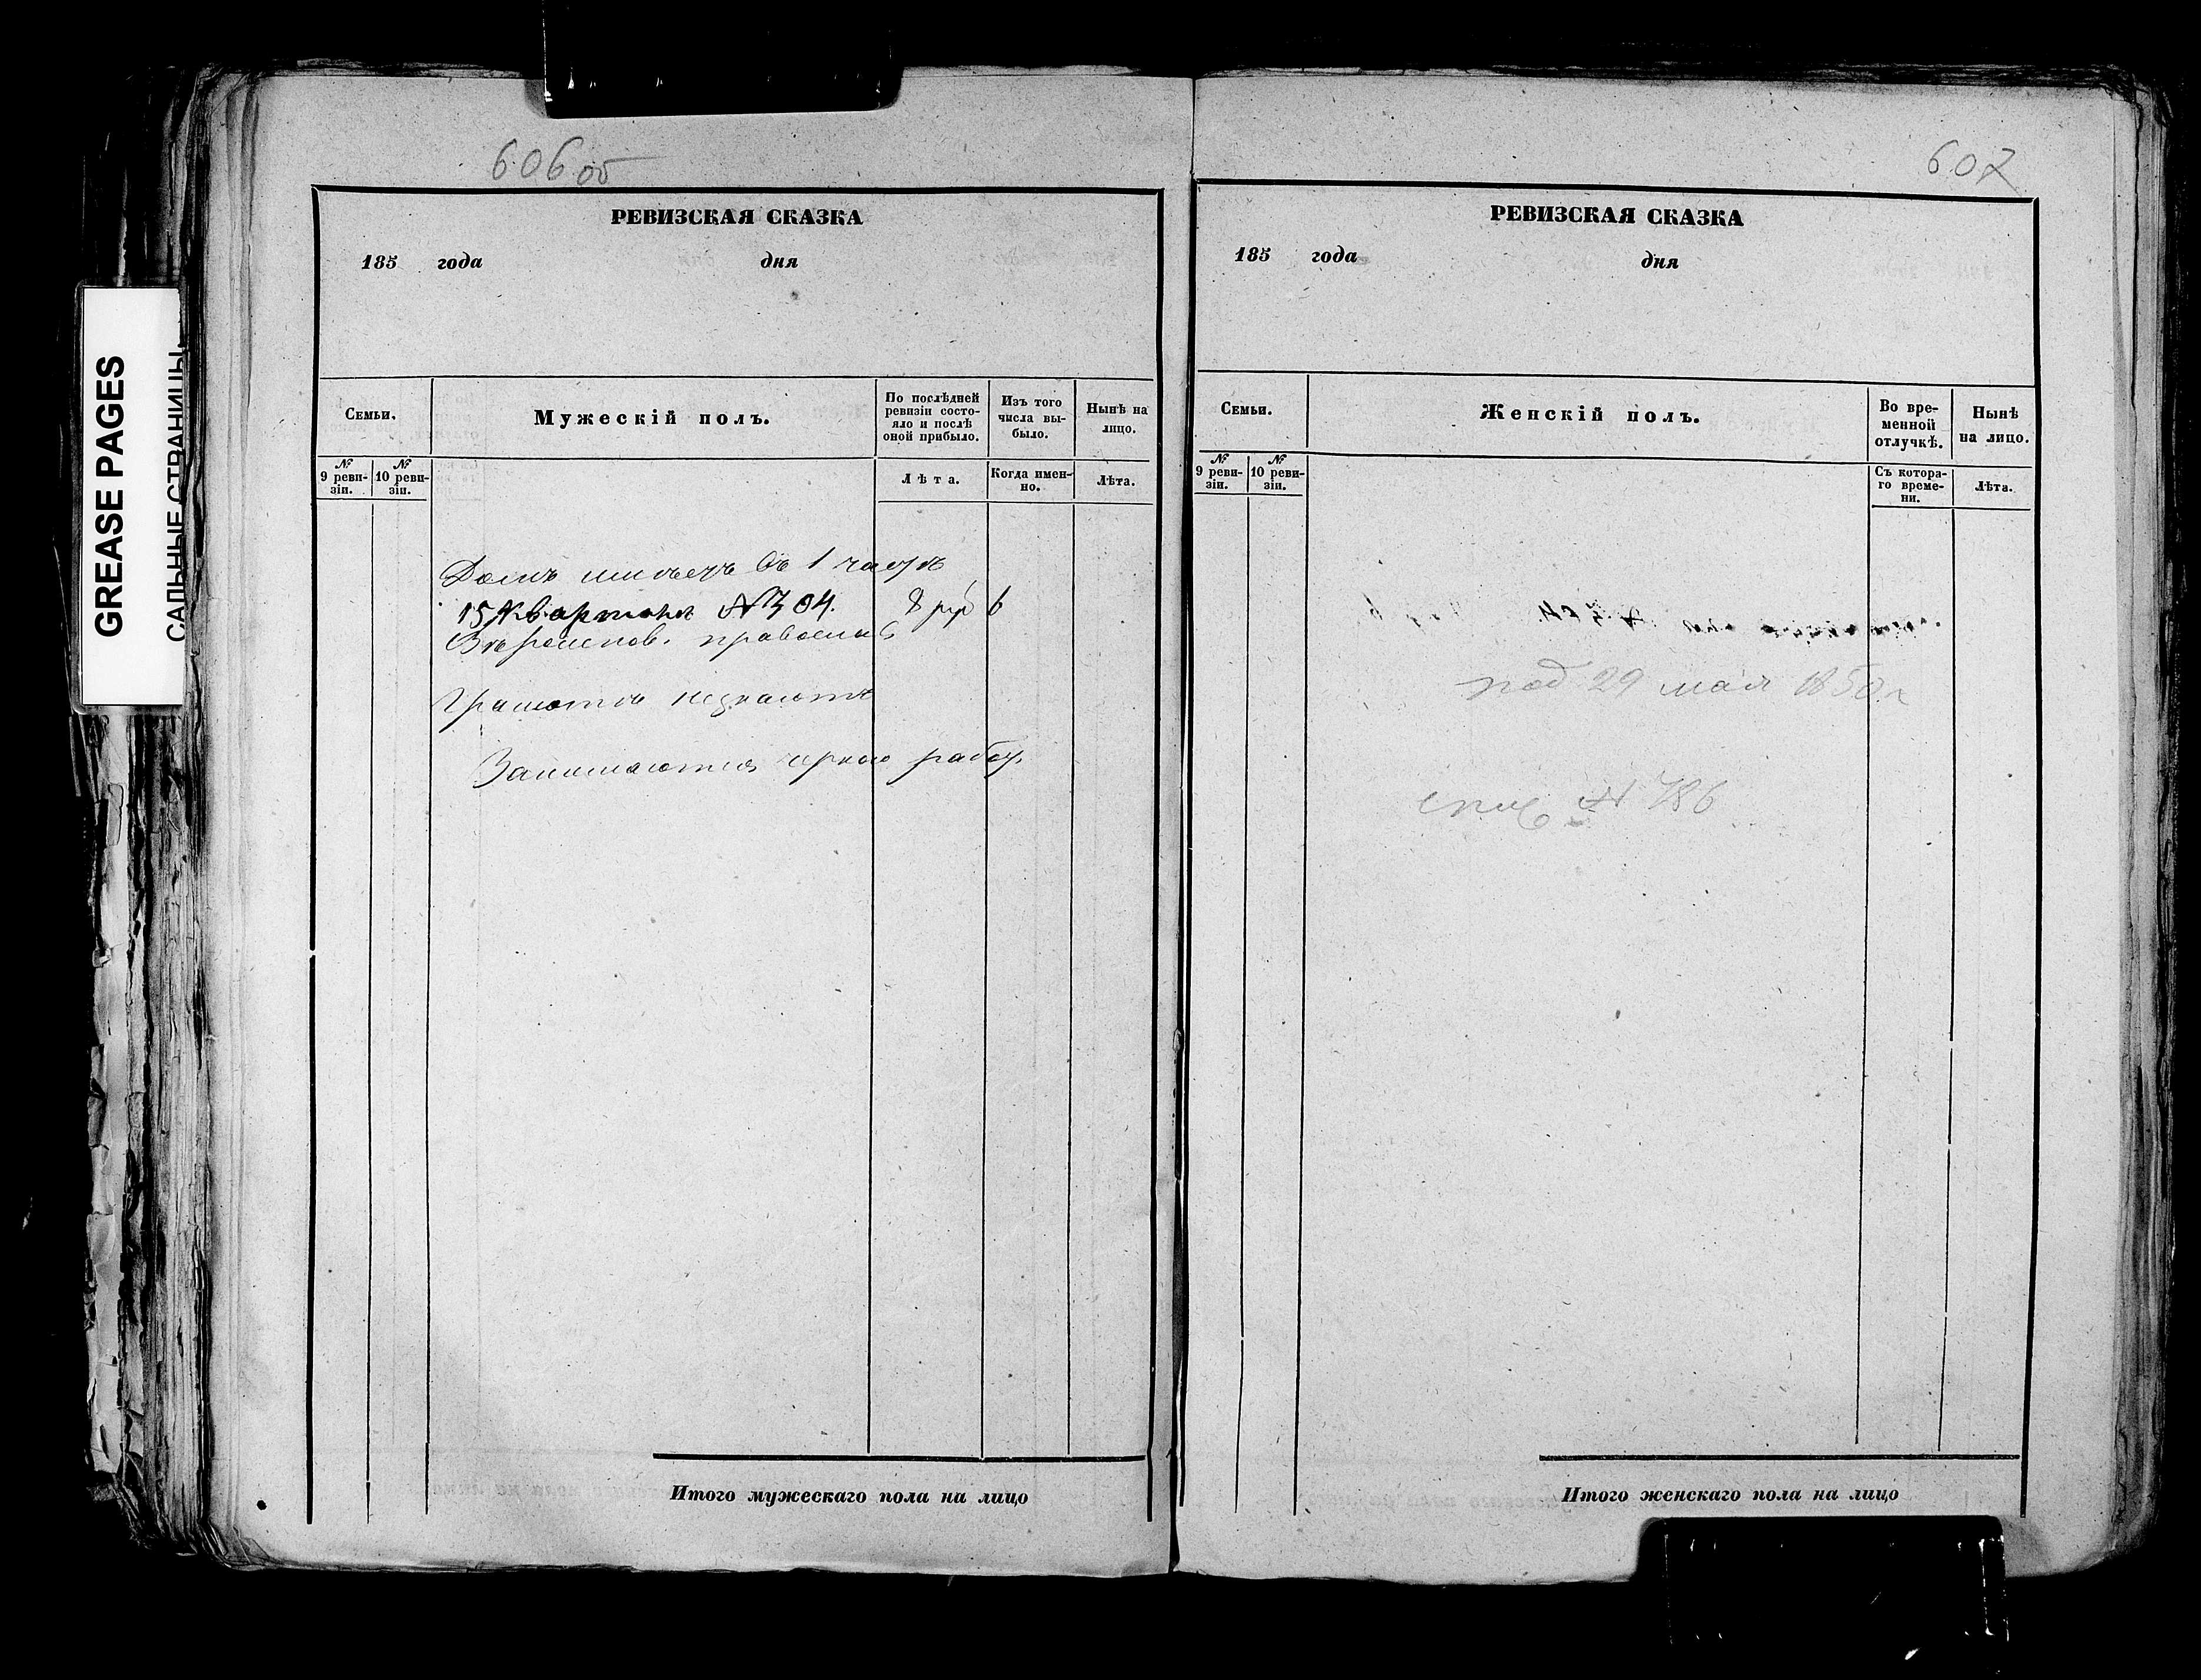 GREASE PAGES
САЛЬНЫЕ СТРАНИЦЫ
606 об
РЕВИЗСКАЯ СКАЗКА
185 года дня
Семьи.
Мужескій полъ.
По послѣдней ревизіи состо-
яло и послѣ оной прибыло.
Изъ того числа вы-
было.
Нынѣ на лицо.
№ 9 реви-
зіи.
№ 10 реви-
зіи.
Лѣта.
Когда имен-
но.
Лѣта.
Домъ имѣетъ въ 1 части
15 Квартала № 304. 8 руб
Вѣроиспов. православ
Грамотѣ незнаютъ
Занимаются черною работ.
Итого мужескаго пола на лицо
607
РЕВИЗСКАЯ СКАЗКА
185 года дня
Семьи.
Женскій полъ.
Во вре-
менной
отлучкѣ.
Нынѣ
на лицо.
№ 9 реви-
зіи.
№ 10 реви-
зіи.
Съ котора-
го време-
ни.
Лѣта.
под 29 мая 1850 г
№ 786
Итого женскаго пола на лицо